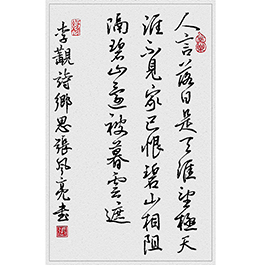 人言落日是天涯望極天
涯不見家已恨碧山相阻
隔碧山還被暮雲遮
李觀詩鄉思張風亮書